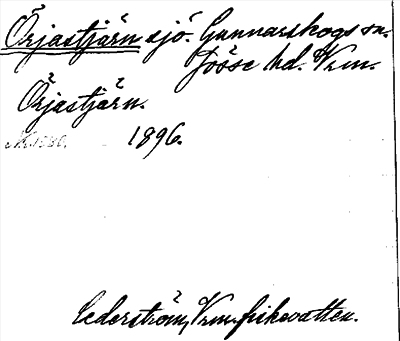 Örjastjärn sjö. Gunnarskogs sn.
Jösse hd. Vrm.
Örjastjärn.
1896.
Cederström, Vrm. fiskevatten.